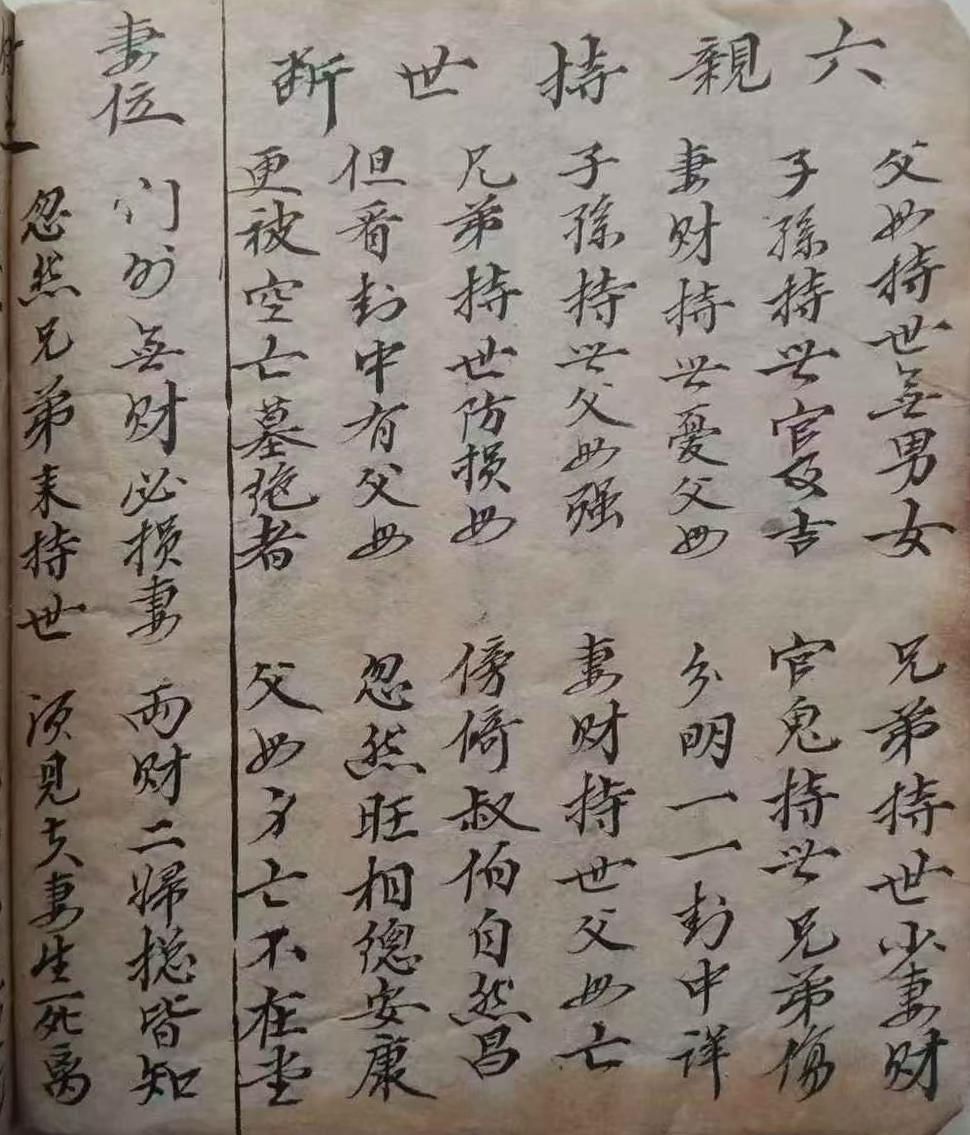 六親持世断
父母持世無男女 兄弟持世少妻财
子孫持世官及吉 官鬼持世兄弟傷
妻财持世憂父母 分明一一卦中詳
子孫持世父母强 妻财持世父母亡
兄弟持世防损母 傍倚叔伯自然昌
但看卦中有父母 忽然旺相總安康
更被空亡墓绝者 父母身亡不在堂
妻位
门外無财必损妻 两财二婦搃皆知
忽然兄弟来持世 须見夫妻生死离